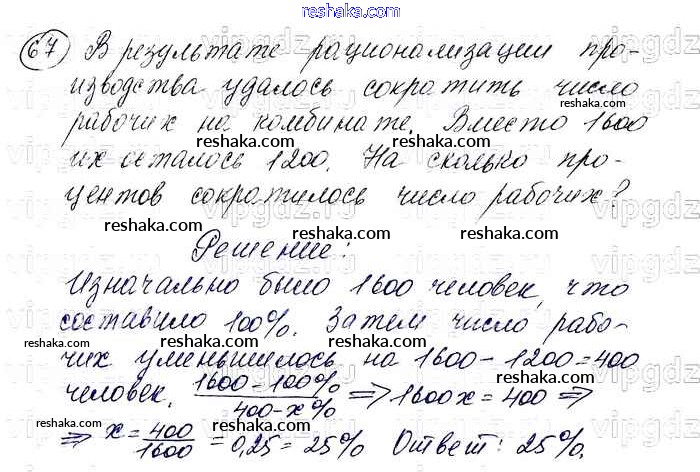 reshaka.com
67 В результате рационализации про-
изводства удалось сократить число
reshaka.com
рабочих на комбинате. Вместо 1600
их осталось 1200. На сколько про-
reshaka.com
центов сократилось число рабочих?
reshaka.com reshaka.com reshaka.com
Решение:
Изначально было 1600 человек, что
reshaka.com
составило 100%. Затем число рабо-
reshaka.com
чих уменьшилось на 1600-1200=400
reshaka.com
человек. 1600-100% / 400-x% ⇒ 1600x=400 ⇒
reshaka.com reshaka.com
⇒ x= 400/1600 =0,25=25% Ответ: 25%.
reshaka.com reshaka.com
vipgdz.ru